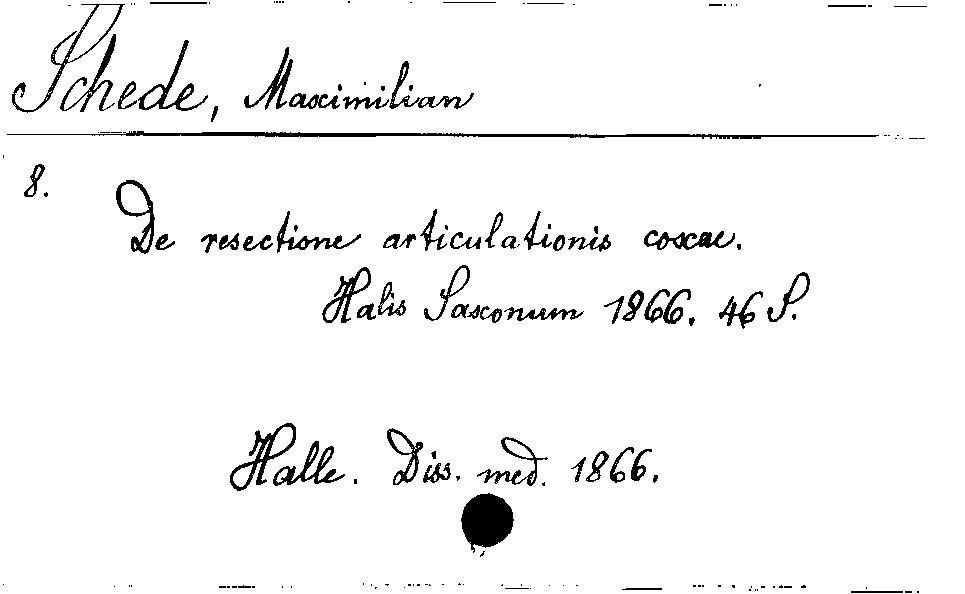 Schede, Maximilian
8.
De resectione articulationis coxae.
Halis Saxonum 1866. 46 S.
Halle. Diss. med. 1866.